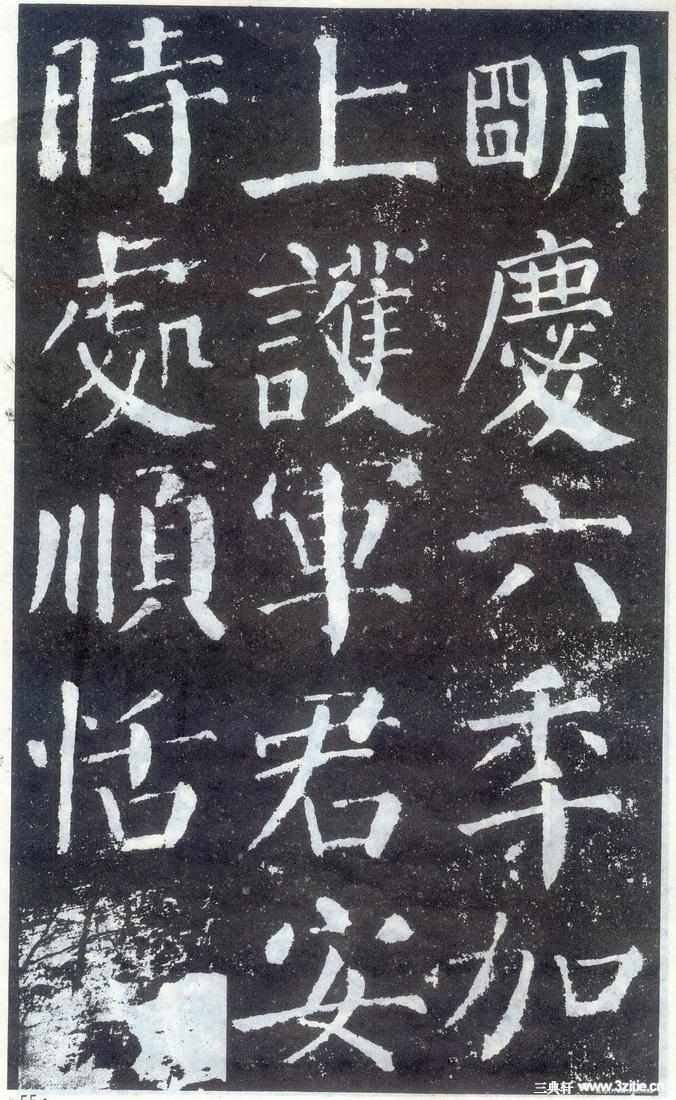 朙慶六秊加
上護軍君安
時處順恬
三典轩 www.3zitie.cn
55